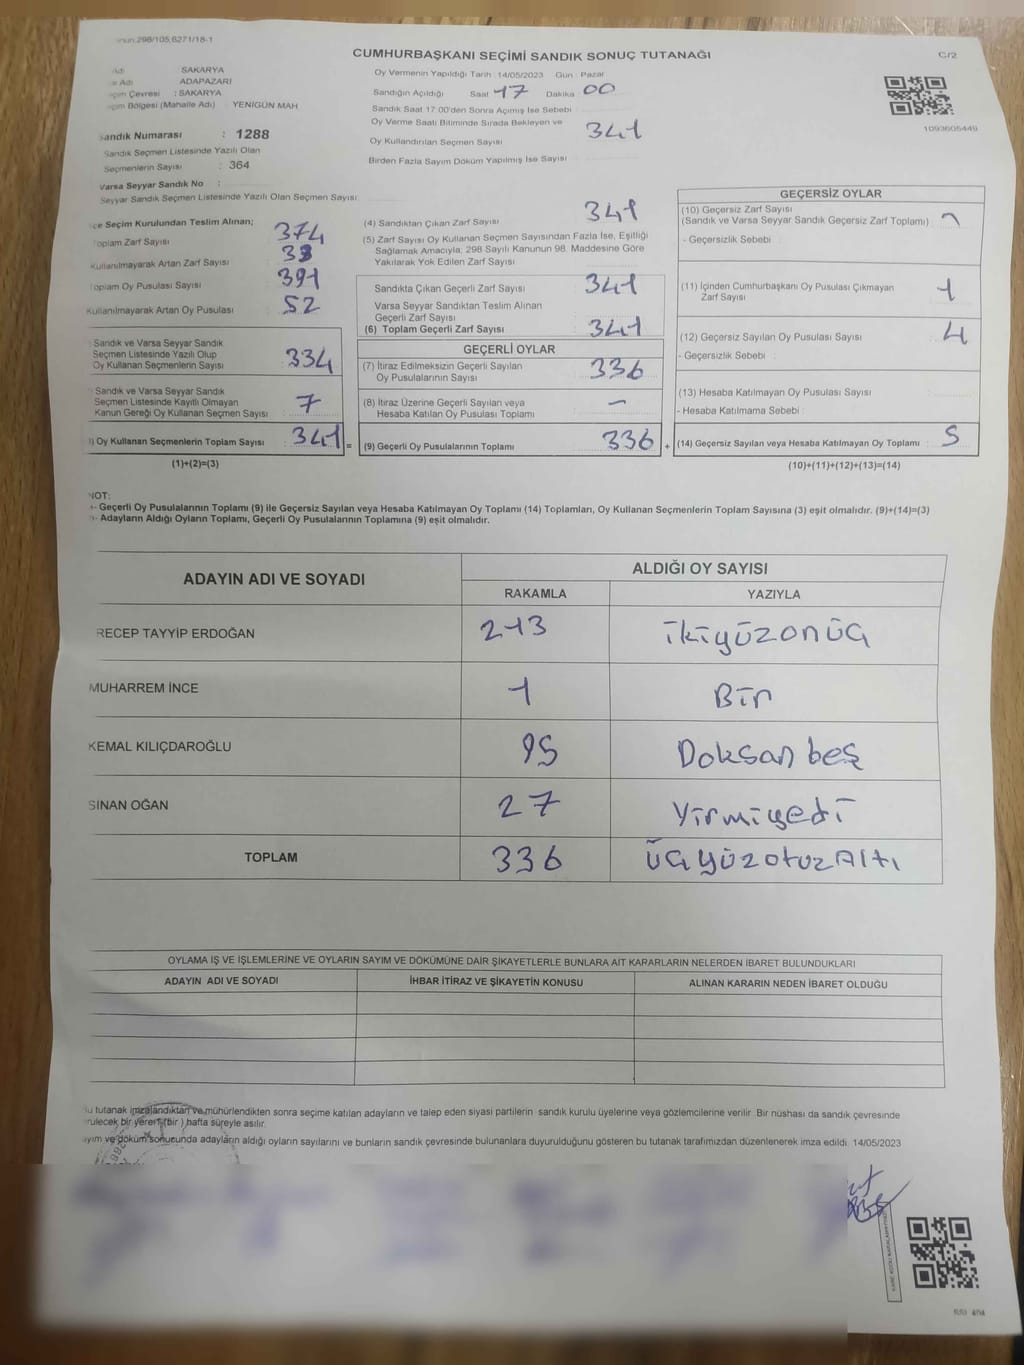 298/105;6271/18-1
CUMHURBAŞKANI SEÇİMİ SANDIK SONUÇ TUTANAĞI
C/2
: SAKARYA
Adı : ADAPAZARI
Çevresi : SAKARYA
Bölgesi (Mahalle Adı) : YENİGÜN MAH
Sandık Numarası : 1288
Sandık Seçmen Listesinde Yazılı Olan
Seçmenlerin Sayısı : 364
Varsa Seyyar Sandık No :
Seyyar Sandık Seçmen Listesinde Yazılı Olan Seçmen Sayısı
Oy Vermenin Yapıldığı Tarih : 14/05/2023 Gün : Pazar
Sandığın Açıldığı Saat 17 Dakika 00
Sandık Saat 17:00'den Sonra Açımış İse Sebebi
Oy Verme Saati Bitiminde Sırada Bekleyen ve
Oy Kullandırılan Seçmen Sayısı 341
Birden Fazla Sayım Döküm Yapılmış İse Sayısı
1093605449
Seçim Kurulundan Teslim Alınan;
Toplam Zarf Sayısı 374
Kullanılmayarak Artan Zarf Sayısı 33
Toplam Oy Pusulası Sayısı 391
Kullanılmayarak Artan Oy Pusulası 52
Sandık ve Varsa Seyyar Sandık
Seçmen Listesinde Yazılı Olup
Oy Kullanan Seçmenlerin Sayısı 334
Sandık ve Varsa Seyyar Sandık
Seçmen Listesinde Kayıtlı Olmayan
Kanun Gereği Oy Kullanan Seçmen Sayısı : 7
Oy Kullanan Seçmenlerin Toplam Sayısı : 341 =
(1)+(2)=(3)
(4) Sandıktan Çıkan Zarf Sayısı 341
(5) Zarf Sayısı Oy Kullanan Seçmen Sayısından Fazla İse, Eşitliği
Sağlamak Amacıyla; 298 Sayılı Kanunun 98. Maddesine Göre
Yakılarak Yok Edilen Zarf Sayısı
Sandıkta Çıkan Geçerli Zarf Sayısı 341
Varsa Seyyar Sandıktan Teslim Alınan
Geçerli Zarf Sayısı
(6) Toplam Geçerli Zarf Sayısı 341
GEÇERLİ OYLAR
(7) İtiraz Edilmeksizin Geçerli Sayılan
Oy Pusulalarının Sayısı 336
(8) İtiraz Üzerine Geçerli Sayılan veya
Hesaba Katılan Oy Pusulası Toplamı –
(9) Geçerli Oy Pusulalarının Toplamı 336 +
GEÇERSİZ OYLAR
(10) Geçersiz Zarf Sayısı
(Sandık ve Varsa Seyyar Sandık Geçersiz Zarf Toplamı)
- Geçersizlik Sebebi
(11) İçinden Cumhurbaşkanı Oy Pusulası Çıkmayan
Zarf Sayısı 1
(12) Geçersiz Sayılan Oy Pusulası Sayısı 4
- Geçersizlik Sebebi
(13) Hesaba Katılmayan Oy Pusulası Sayısı
- Hesaba Katılmama Sebebi
(14) Geçersiz Sayılan veya Hesaba Katılmayan Oy Toplamı 5
(10)+(11)+(12)+(13)=(14)
NOT:
- Geçerli Oy Pusulalarının Toplamı (9) ile Geçersiz Sayılan veya Hesaba Katılmayan Oy Toplamı (14) Toplamları, Oy Kullanan Seçmenlerin Toplam Sayısına (3) eşit olmalıdır. (9)+(14)=(3)
- Adayların Aldığı Oyların Toplamı, Geçerli Oy Pusulalarının Toplamına (9) eşit olmalıdır.
ADAYIN ADI VE SOYADI
ALDIĞI OY SAYISI
RAKAMLA YAZIYLA
RECEP TAYYİP ERDOĞAN 213 ikiyüzonüç
MUHARREM İNCE 1 Bir
KEMAL KILIÇDAROĞLU 95 Doksan beş
SİNAN OĞAN 27 Yirmiyedi
TOPLAM 336 üçyüzotuzAltı
OYLAMA İŞ VE İŞLEMLERİNE VE OYLARIN SAYIM VE DÖKÜMÜNE DAİR ŞİKAYETLERLE BUNLARA AİT KARARLARIN NELERDEN İBARET BULUNDUKLARI
ADAYIN ADI VE SOYADI İHBAR İTİRAZ VE ŞİKAYETİN KONUSU ALINAN KARARIN NEDEN İBARET OLDUĞU
tutanak imzalandıktan ve mühürlendikten sonra seçime katılan adayların ve talep eden siyasi partilerin sandık kurulu üyelerine veya gözlemcilerine verilir. Bir nüshası da sandık çevresinde
bir yere 1 (bir) hafta süreyle asılır.
ve döküm sonucunda adayların aldığı oyların sayılarını ve bunların sandık çevresinde bulunanlara duyurulduğunu gösteren bu tutanak tarafımızdan düzenlenerek imza edildi. 14/05/2023